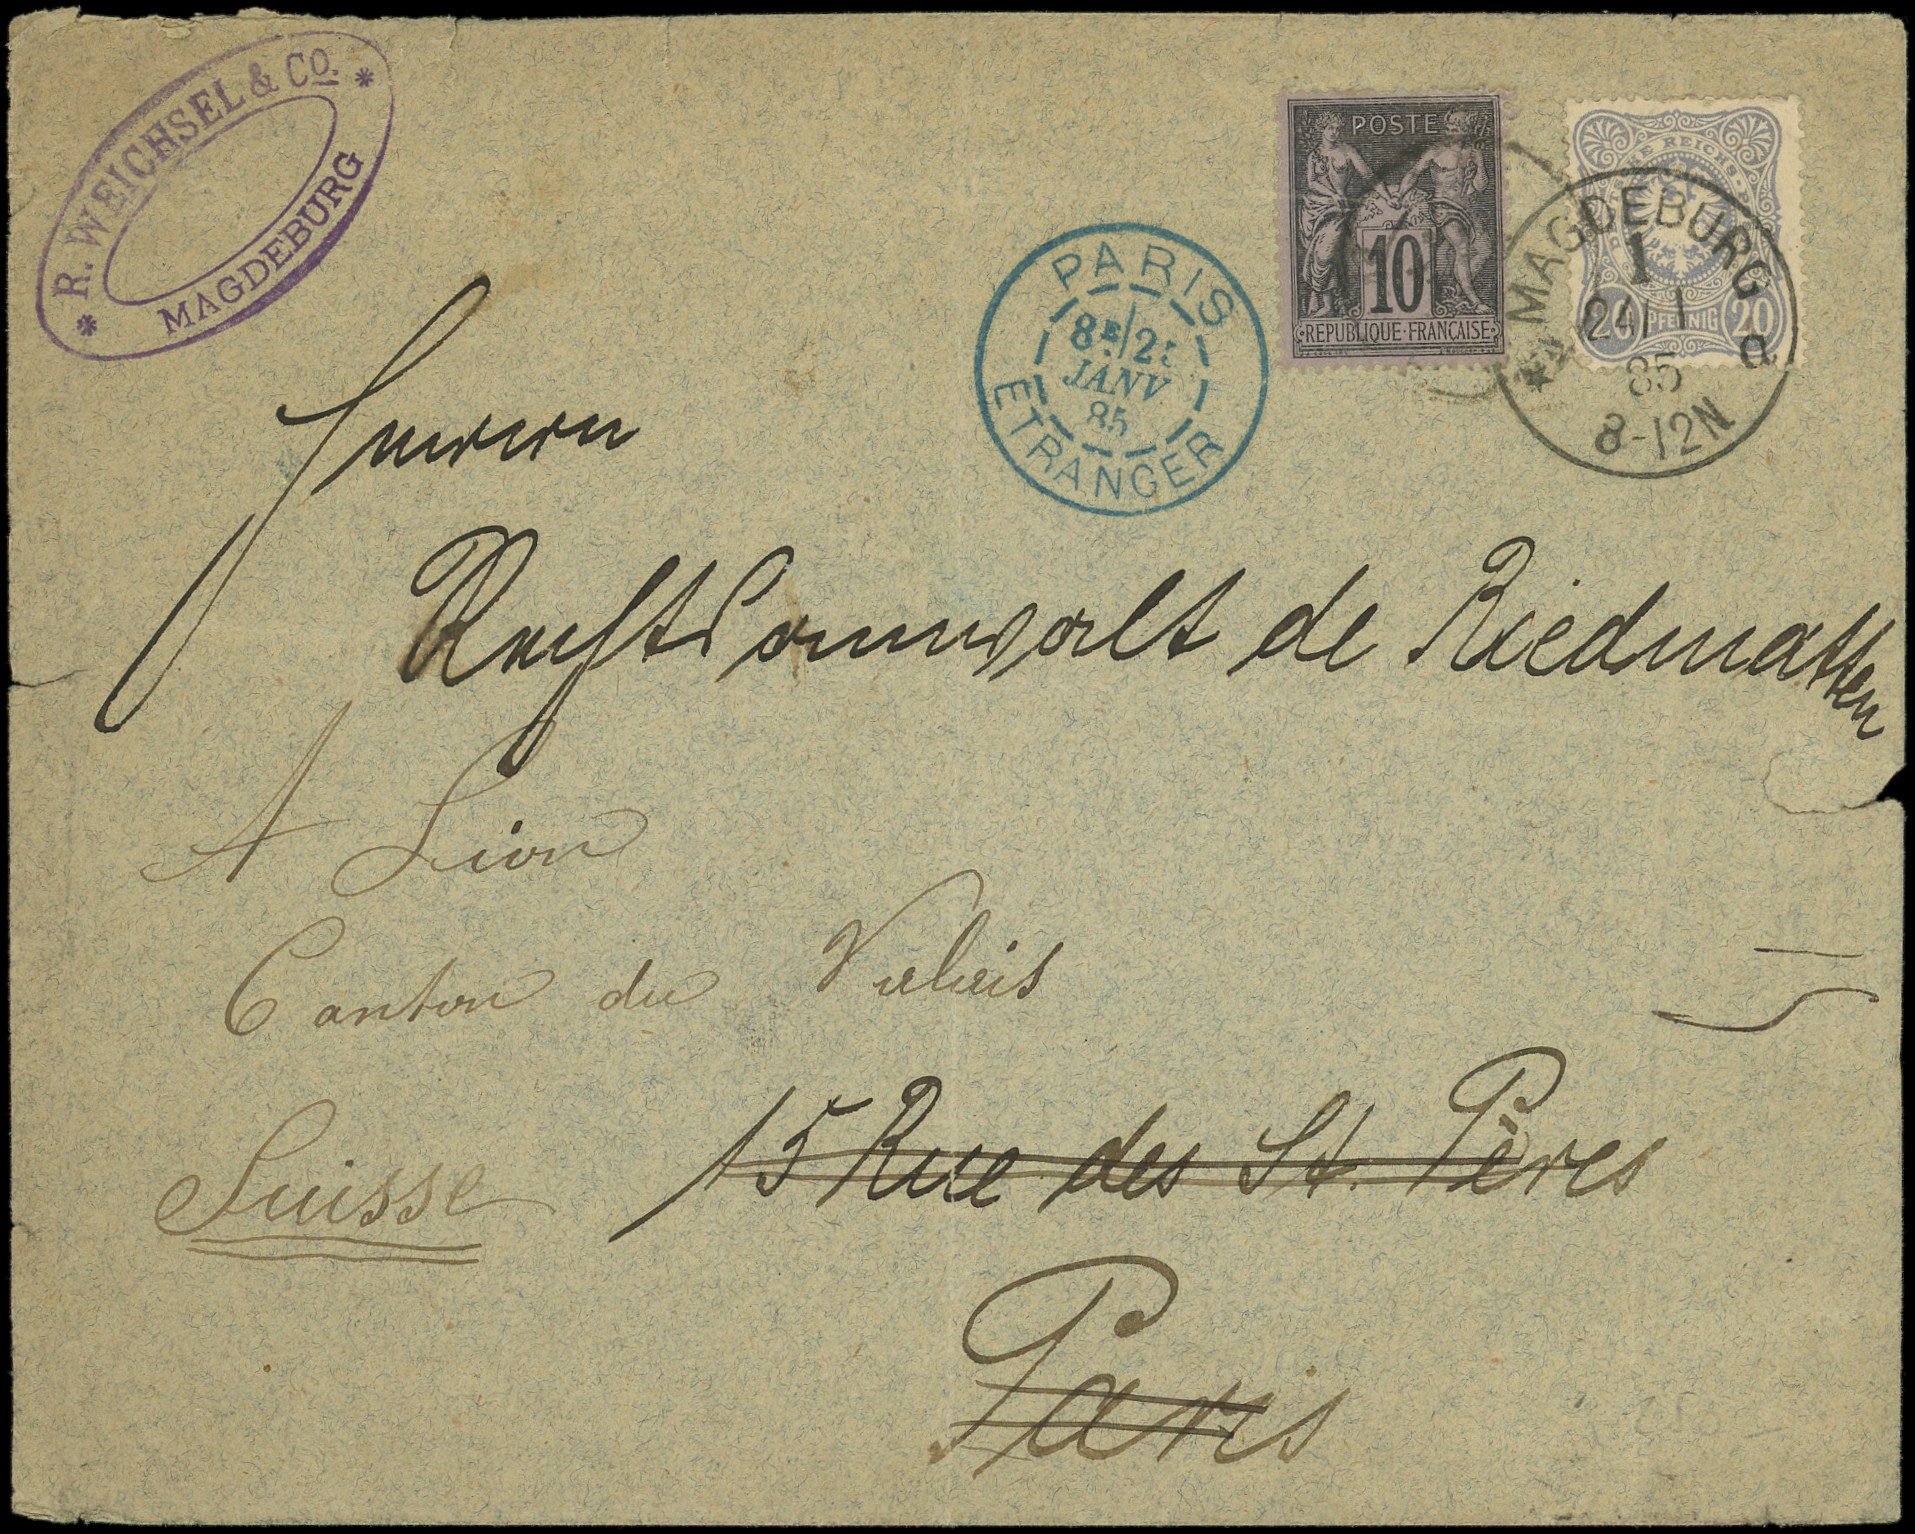 R. WEICHSEL & Co.
MAGDEBURG
POSTE
10
REPUBLIQUE FRANCAISE
REICHS-
20 PFENNIG 20
MAGDEBURG
1
24 1
85
a
8-12N
PARIS
8E/2
JANV
85
ETRANGER
Herrn
Rechtsanwalt de Riedmatten
A Sion
Canton du Valais
Suisse
15 Rue des St. Pères
Paris